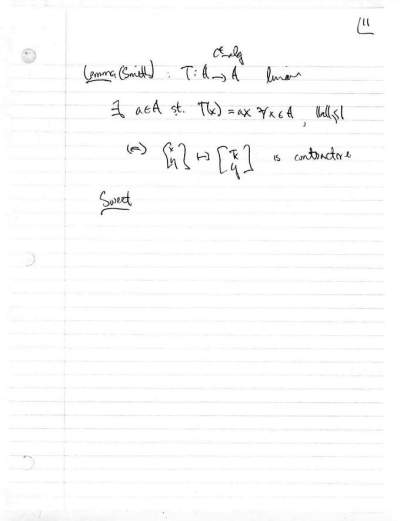 11
C*-alg
Lemma (Smith) : T: A → A linear
∃ a∈A st. T(x) = ax ∀x∈A , ||a||≤1
(⇔) [x y] ↦ [Tx y] is contractive
Sweet